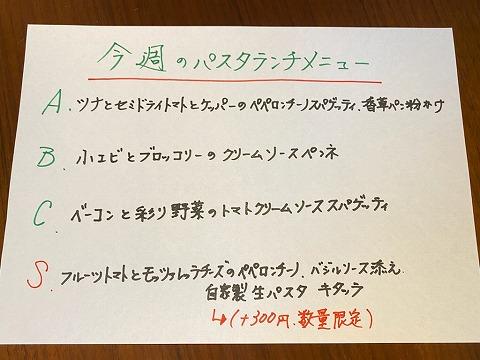 今週のパスタランチメニュー
A. ツナとセミドライトマトとケッパーのペペロンチーノスパゲッティ、香草パン粉かけ
B. 小エビとブロッコリーのクリームソースペンネ
C. ベーコンと彩り野菜のトマトクリームソーススパゲッティ
S. フルーツトマトとモッツァレラチーズのペペロンチーノ、バジルソース添え
自家製生パスタ キタッラ
↳(+300円、数量限定)